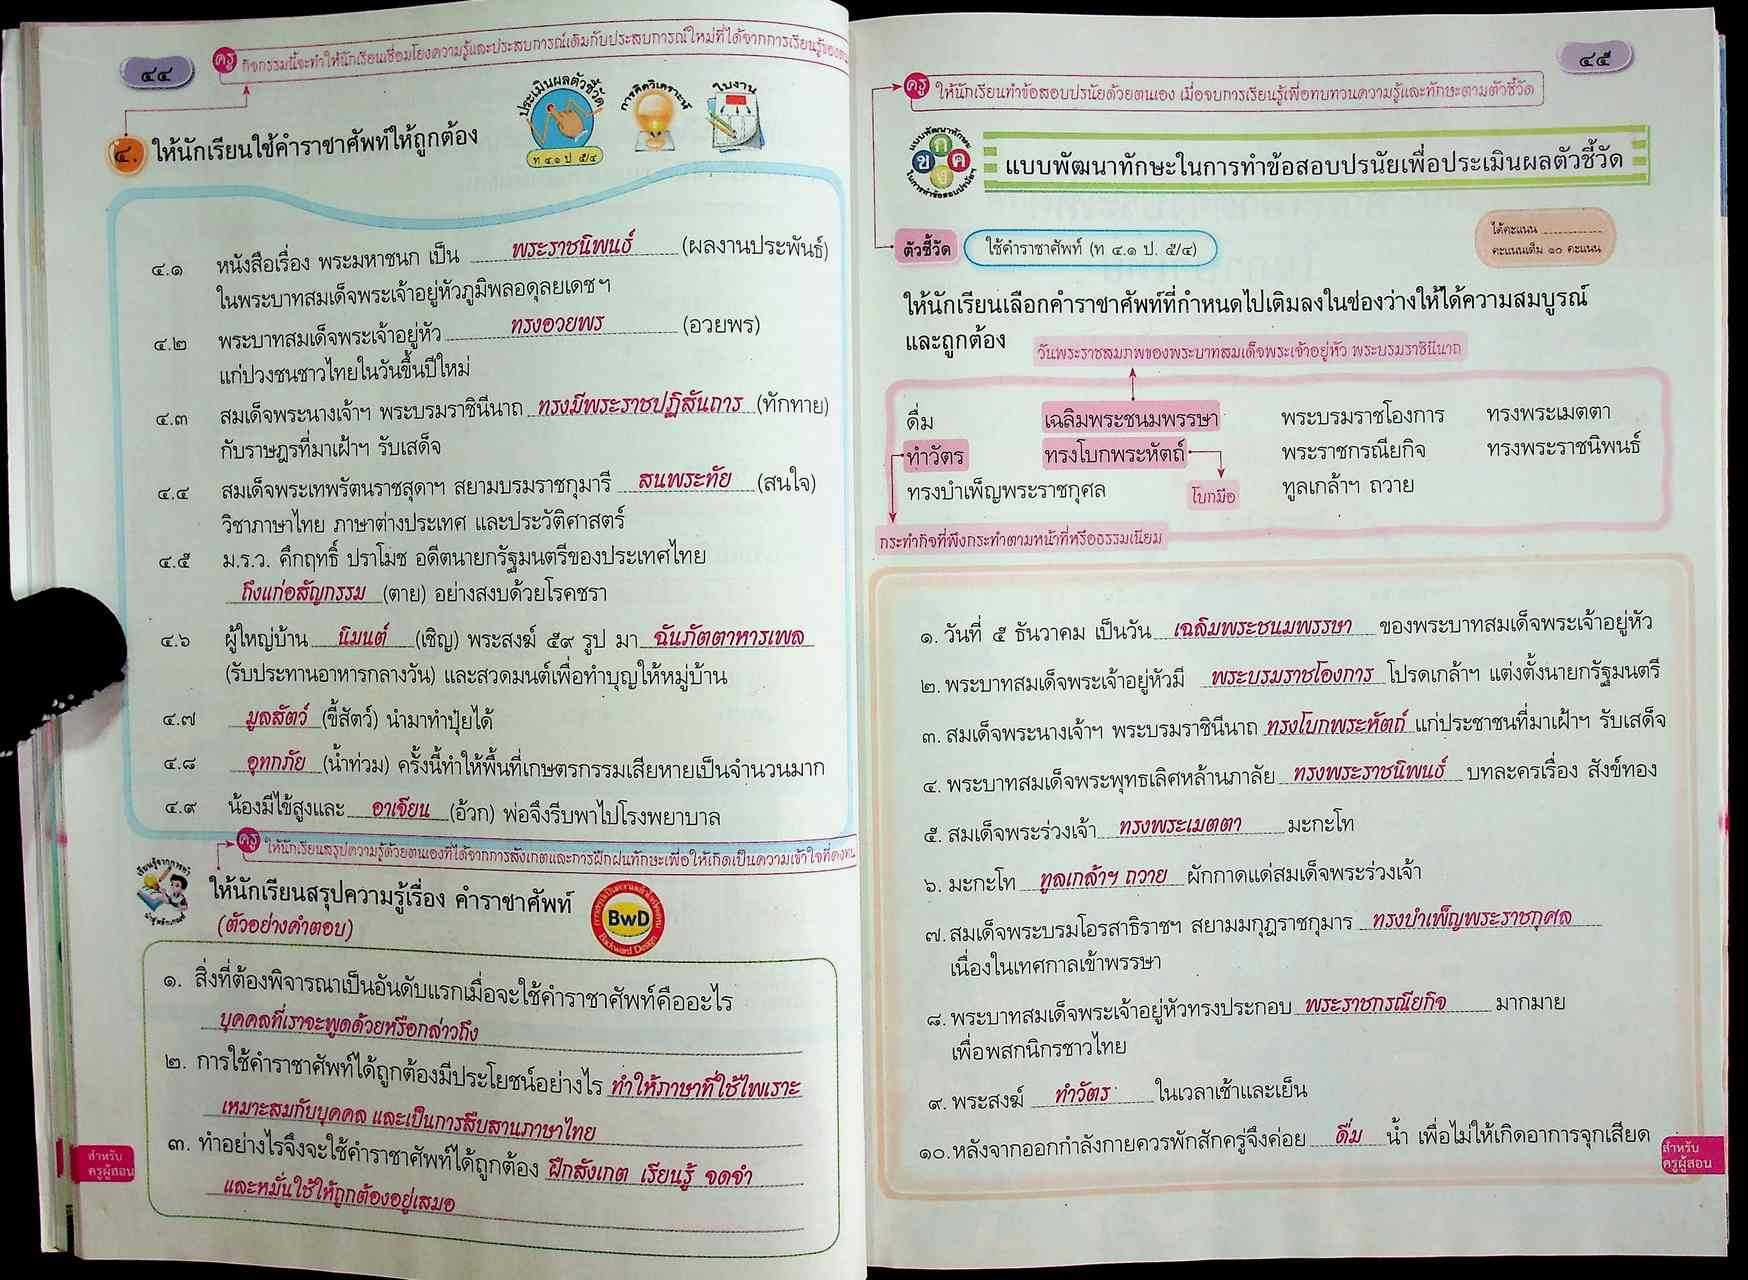 ๔๔
ครู กิจกรรมนี้จะทำให้นักเรียนเชื่อมโยงความรู้และประสบการณ์เดิมกับประสบการณ์ใหม่ที่ได้จากการเรียนรู้ของตน
๔. ให้นักเรียนใช้คำราชาศัพท์ให้ถูกต้อง
ประเมินผลตัวชี้วัด
ท ๔.๑ ป. ๕/๔
การคิดวิเคราะห์
ใบงาน
๔.๑ หนังสือเรื่อง พระมหาชนก เป็น พระราชนิพนธ์ (ผลงานประพันธ์)
ในพระบาทสมเด็จพระเจ้าอยู่หัวภูมิพลอดุลยเดชฯ
๔.๒ พระบาทสมเด็จพระเจ้าอยู่หัว ทรงอวยพร (อวยพร)
แก่ปวงชนชาวไทยในวันขึ้นปีใหม่
๔.๓ สมเด็จพระนางเจ้าฯ พระบรมราชินีนาถ ทรงมีพระราชปฏิสันถาร (ทักทาย)
กับราษฎรที่มาเฝ้าฯ รับเสด็จ
๔.๔ สมเด็จพระเทพรัตนราชสุดาฯ สยามบรมราชกุมารี สนพระทัย (สนใจ)
วิชาภาษาไทย ภาษาต่างประเทศ และประวัติศาสตร์
๔.๕ ม.ร.ว. คึกฤทธิ์ ปราโมช อดีตนายกรัฐมนตรีของประเทศไทย
ถึงแก่อสัญกรรม (ตาย) อย่างสงบด้วยโรคชรา
๔.๖ ผู้ใหญ่บ้าน นิมนต์ (เชิญ) พระสงฆ์ ๕๙ รูป มา ฉันภัตตาหารเพล
(รับประทานอาหารกลางวัน) และสวดมนต์เพื่อทำบุญให้หมู่บ้าน
๔.๗ มูลสัตว์ (ขี้สัตว์) นำมาทำปุ๋ยได้
๔.๘ อุทกภัย (น้ำท่วม) ครั้งนี้ทำให้พื้นที่เกษตรกรรมเสียหายเป็นจำนวนมาก
๔.๙ น้องมีไข้สูงและ อาเจียน (อ้วก) พ่อจึงรีบพาไปโรงพยาบาล
ครู ให้นักเรียนสรุปความรู้ด้วยตนเองที่ได้จากการสังเกตและการฝึกฝนทักษะเพื่อให้เกิดเป็นความเข้าใจที่คงทน
ให้นักเรียนสรุปความรู้เรื่อง คำราชาศัพท์
(ตัวอย่างคำตอบ)
BwD
Backward Design
๑. สิ่งที่ต้องพิจารณาเป็นอันดับแรกเมื่อจะใช้คำราชาศัพท์คืออะไร
บุคคลที่เราจะพูดด้วยหรือกล่าวถึง
๒. การใช้คำราชาศัพท์ได้ถูกต้องมีประโยชน์อย่างไร ทำให้ภาษาที่ใช้ไพเราะ
เหมาะสมกับบุคคล และเป็นการสืบสานภาษาไทย
๓. ทำอย่างไรจึงจะใช้คำราชาศัพท์ได้ถูกต้อง ฝึกสังเกต เรียนรู้ จดจำ
และหมั่นใช้ให้ถูกต้องอยู่เสมอ
สำหรับ
ครูผู้สอน
๔๕
ครู ให้นักเรียนทำข้อสอบปรนัยด้วยตนเอง เมื่อจบการเรียนรู้เพื่อทบทวนความรู้และทักษะตามตัวชี้วัด
แบบพัฒนาทักษะ
ก ข ค ง
ในการทำข้อสอบปรนัยฯ
แบบพัฒนาทักษะในการทำข้อสอบปรนัยเพื่อประเมินผลตัวชี้วัด
ตัวชี้วัด ใช้คำราชาศัพท์ (ท ๔.๑ ป. ๕/๔)
ได้คะแนน
คะแนนเต็ม ๑๐ คะแนน
ให้นักเรียนเลือกคำราชาศัพท์ที่กำหนดไปเติมลงในช่องว่างให้ได้ความสมบูรณ์
และถูกต้อง
วันพระราชสมภพของพระบาทสมเด็จพระเจ้าอยู่หัว พระบรมราชินีนาถ
ดื่ม เฉลิมพระชนมพรรษา พระบรมราชโองการ ทรงพระเมตตา
ทำวัตร ทรงโบกพระหัตถ์ พระราชกรณียกิจ ทรงพระราชนิพนธ์
ทรงบำเพ็ญพระราชกุศล โบกมือ ทูลเกล้าฯ ถวาย
กระทำกิจที่พึงกระทำตามหน้าที่หรือธรรมเนียม
๑. วันที่ ๕ ธันวาคม เป็นวัน เฉลิมพระชนมพรรษา ของพระบาทสมเด็จพระเจ้าอยู่หัว
๒. พระบาทสมเด็จพระเจ้าอยู่หัวมี พระบรมราชโองการ โปรดเกล้าฯ แต่งตั้งนายกรัฐมนตรี
๓. สมเด็จพระนางเจ้าฯ พระบรมราชินีนาถ ทรงโบกพระหัตถ์ แก่ประชาชนที่มาเฝ้าฯ รับเสด็จ
๔. พระบาทสมเด็จพระพุทธเลิศหล้านภาลัย ทรงพระราชนิพนธ์ บทละครเรื่อง สังข์ทอง
๕. สมเด็จพระร่วงเจ้า ทรงพระเมตตา มะกะโท
๖. มะกะโท ทูลเกล้าฯ ถวาย ผักกาดแด่สมเด็จพระร่วงเจ้า
๗. สมเด็จพระบรมโอรสาธิราชฯ สยามมกุฎราชกุมาร ทรงบำเพ็ญพระราชกุศล
เนื่องในเทศกาลเข้าพรรษา
๘. พระบาทสมเด็จพระเจ้าอยู่หัวทรงประกอบ พระราชกรณียกิจ มากมาย
เพื่อพสกนิกรชาวไทย
๙. พระสงฆ์ ทำวัตร ในเวลาเช้าและเย็น
๑๐. หลังจากออกกำลังกายควรพักสักครู่จึงค่อย ดื่ม น้ำ เพื่อไม่ให้เกิดอาการจุกเสียด
สำหรับ
ครูผู้สอน